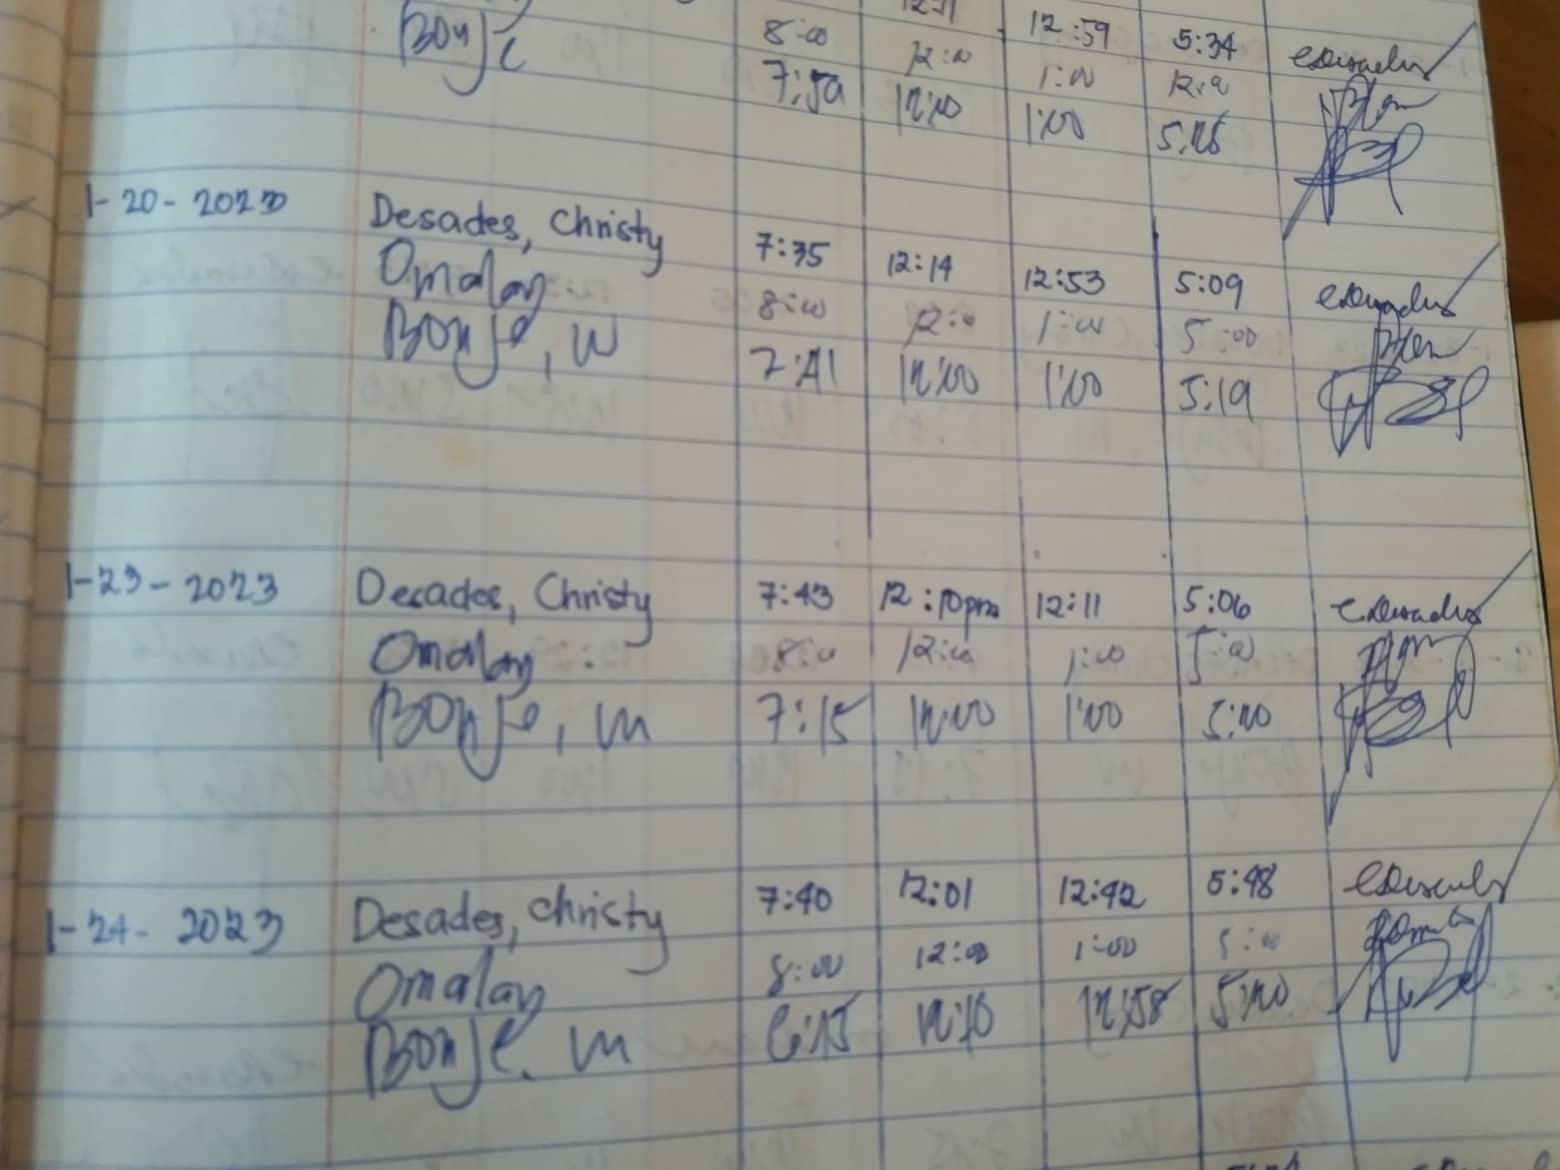 12:11 12:59 5:34
Bonje 8:00 12:00 1:00
7:59 12:00 1:00
1-20-2023 Desades, Christy 7:35 12:14 12:53 5:09
Omalay 8:00 12:00 1:00 5:00
Bonje, m 7:41 12:00 1:00 5:19
1-23-2023 Desades, Christy 7:43 12:10pm 12:11 5:06
Omalay 8:00 12:00 1:00 5:00
Bonje, m 7:15 12:00 1:00 5:20
1-24-2023 Desades, Christy 7:40 12:01 12:42 5:48
Omalay 8:00 12:00 1:00 5:00
Bonje. m 12:10 12:58 5:20